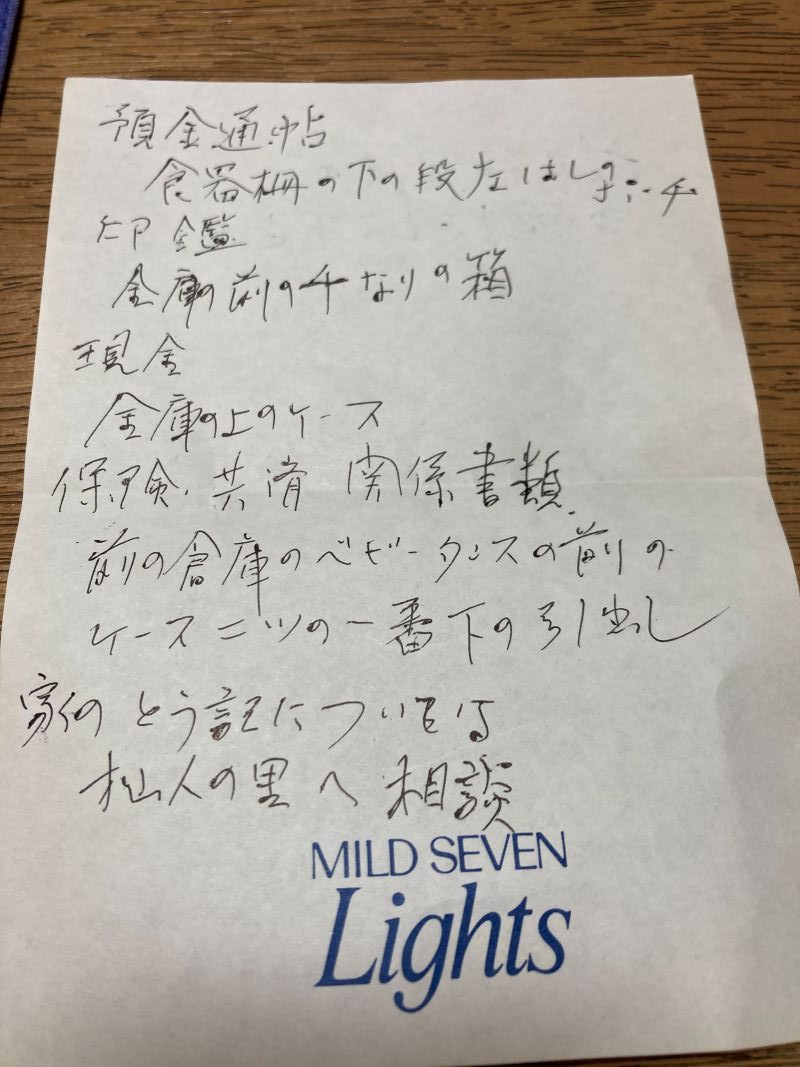 預金通帖
食器棚の下の段左はしのポーチ
印鑑
金庫の前の千なりの箱
現金
金庫の上のケース
保険、共済 関係書類
前の倉庫のベビータンスの前の
ケース二ツの一番下の引出し
家の とう記については
仙人の里へ 相談
MILD SEVEN
Lights